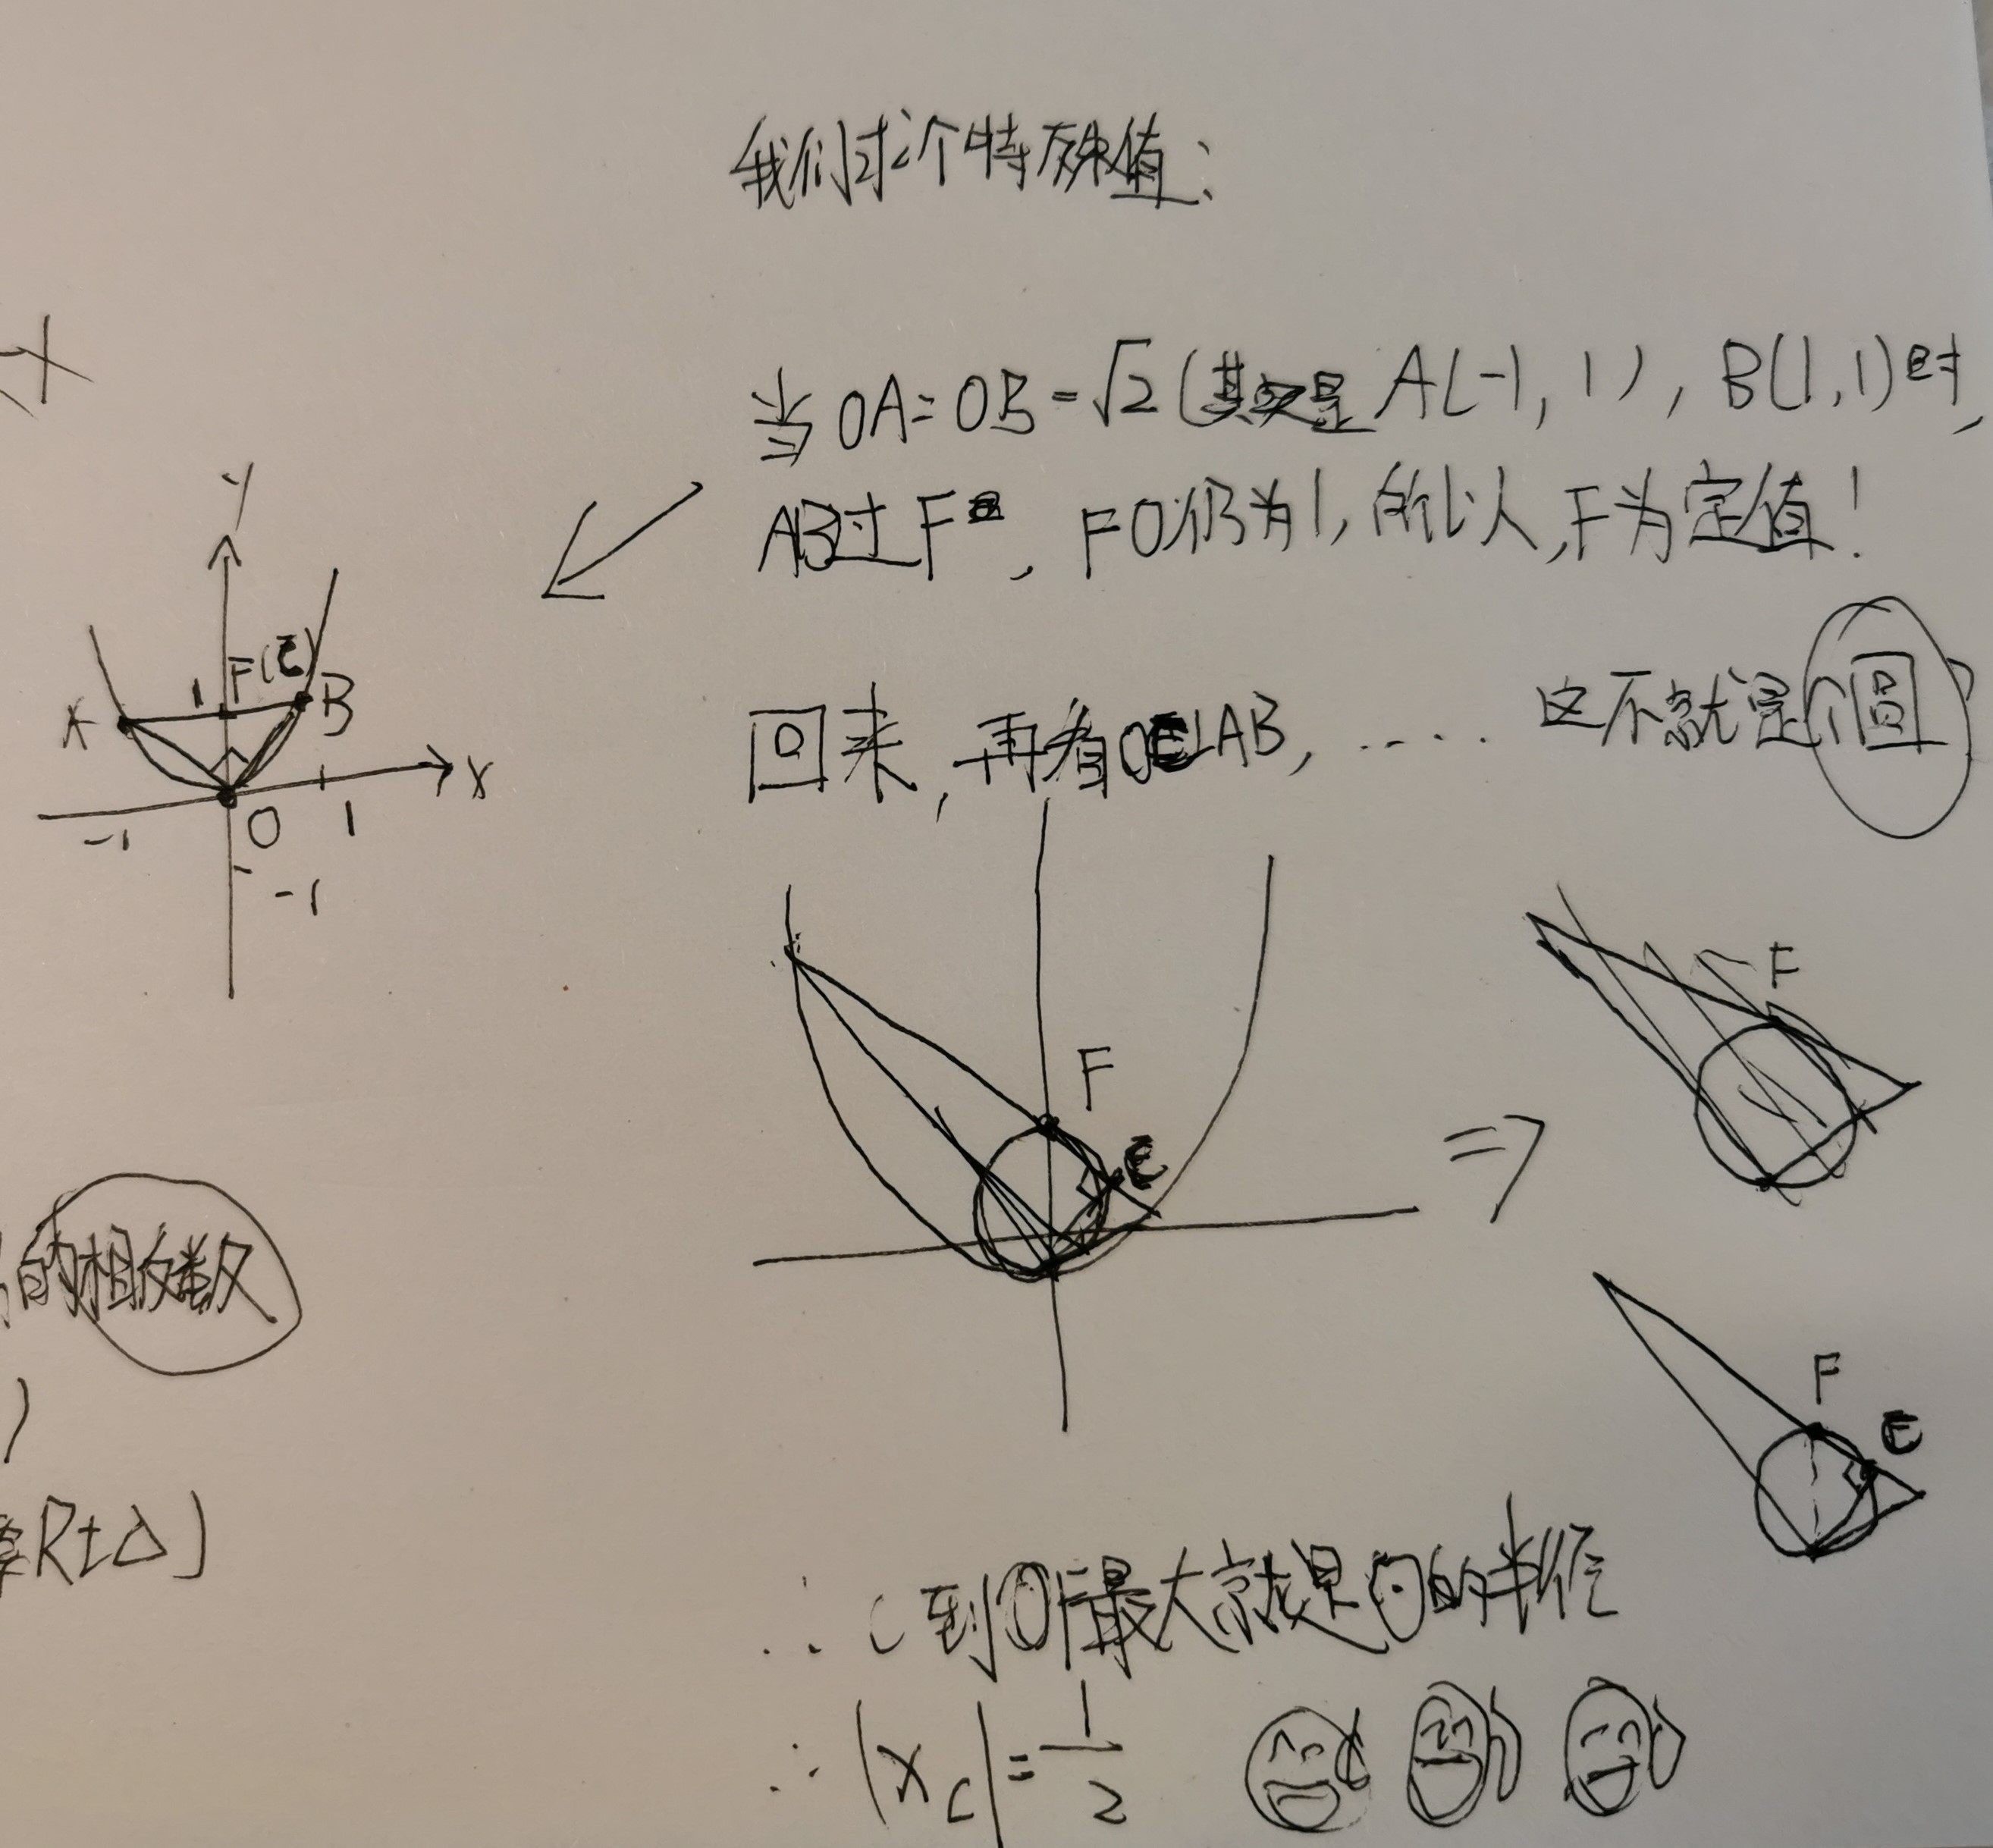 我们求个特殊值:
当OA=OB=√2(其实是A(-1,1),B(1,1)时,
AB过F,FO仍为1,所以,F为定值!
回来,再看OE⊥AB,.....这不就是个圆
y
F(E)
1
A
B
x
-1
O
1
-1
F
E
⇒
F
F
E
的相反数
)
Rt△)
∴C到OF最大就是⊙的半径
∴|x_C|=1/2